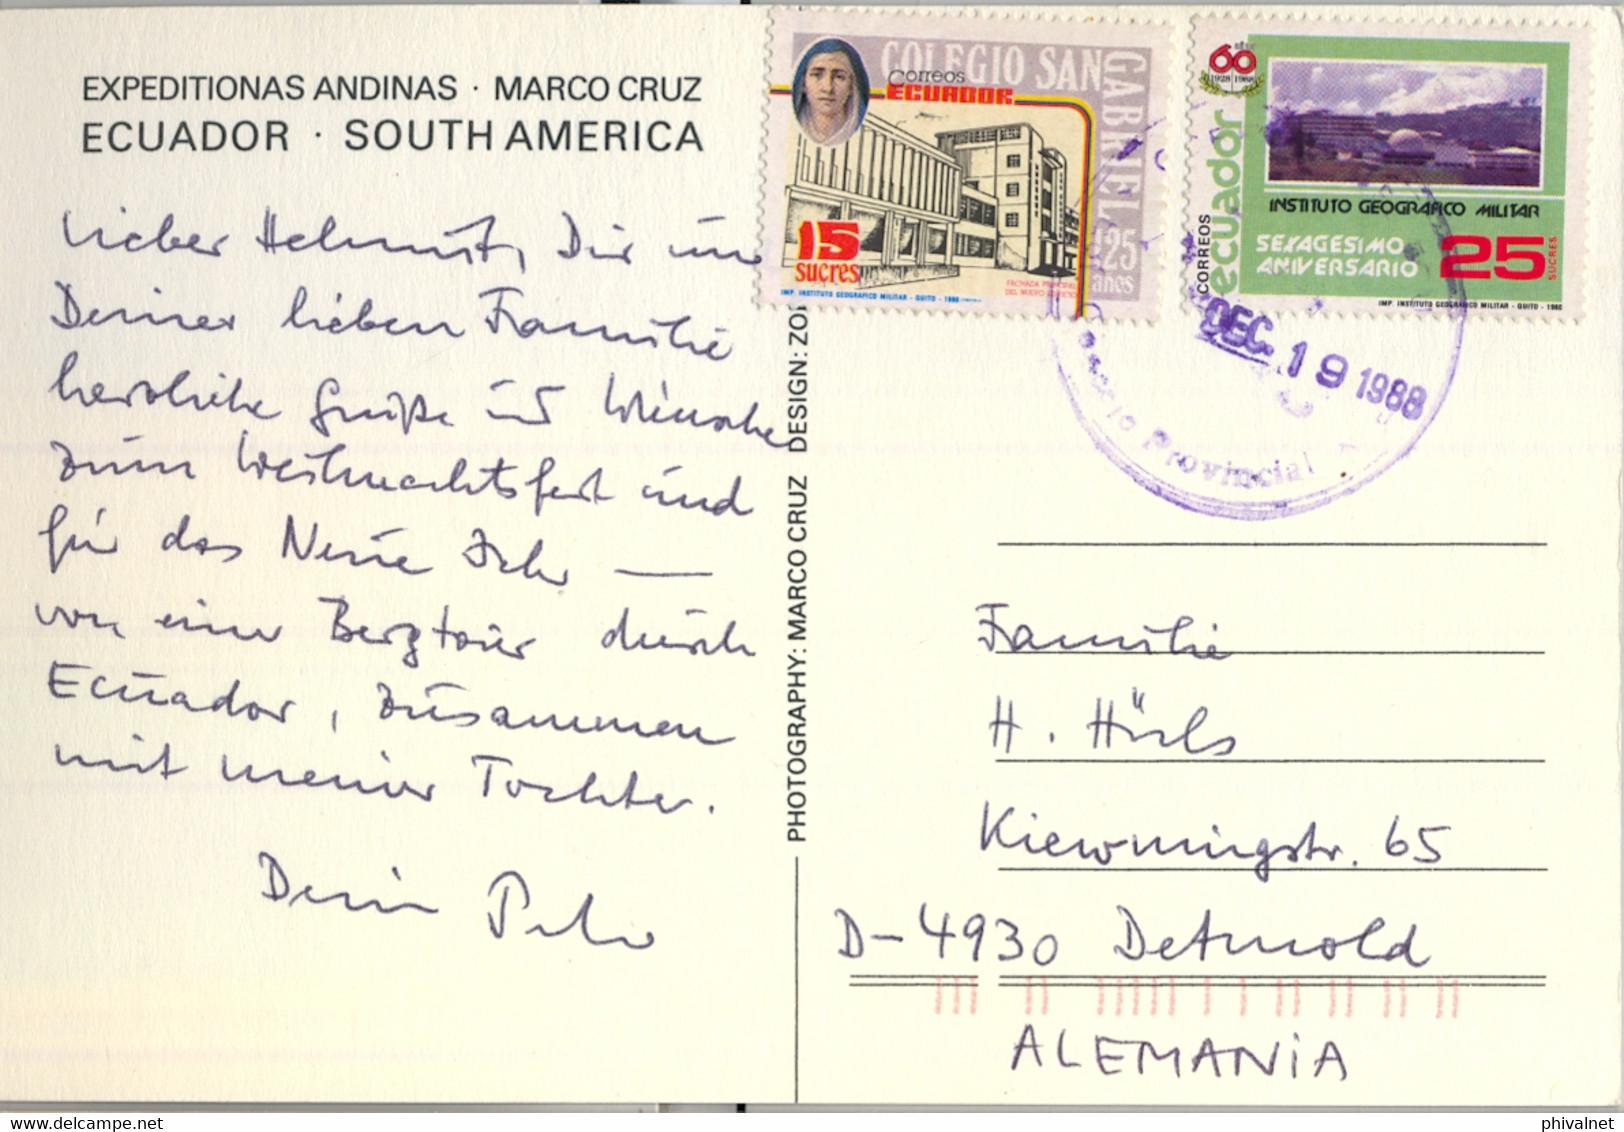 EXPEDITIONAS ANDINAS · MARCO CRUZ
ECUADOR · SOUTH AMERICA
Lieber Helmut, Dir und
Deiner lieben Familie
herzliche Grüße und Wünsche
zum Weihnachtsfest und
für das Neue Jahr —
von einer Bergtour durch
Ecuador, zusammen
mit meiner Tochter.
Dein
PHOTOGRAPHY: MARCO CRUZ DESIGN:
COLEGIO SAN GABRIEL 125 años
Correos
ECUADOR
15
SUCRES
FACHADA PRINCIPAL
DEL NUEVO EDIFICIO
IMP. INSTITUTO GEOGRAFICO MILITAR - QUITO - 1988
60 años
1928 1988
CORREOS
ecuador
INSTITUTO GEOGRAFICO MILITAR
SEXAGESIMO
ANIVERSARIO
25 SUCRES
IMP. INSTITUTO GEOGRAFICO MILITAR - QUITO - 1988
DEC. 19 1988
Provincial
Familie
H.
Kiewningstr. 65
D-4930 Detmold
ALEMANIA
phivalnet